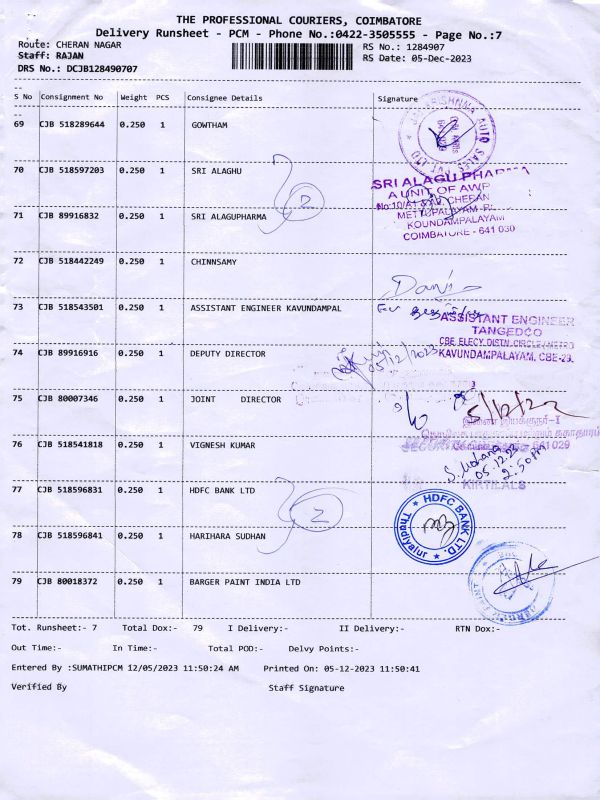 THE PROFESSIONAL COURIERS, COIMBATORE
Delivery Runsheet - PCM - Phone No.:0422-3505555 - Page No.:7
Route: CHERAN NAGAR
RS No.: 1284907
Staff: RAJAN
RS Date: 05-Dec-2023
DRS No.: DCJB128490707
S No Consignment No Weight PCS Consignee Details Signature
69 CJB 518289644 0.250 1 GOWTHAM
70 CJB 518597203 0.250 1 SRI ALAGHU
SRI ALAGU PHARMA
A UNIT OF AWP
CHERAN
2
71 CJB 89916832 0.250 1 SRI ALAGUPHARMA
METTUPALAYAM
KOUNDAMPALAYAM
COIMBATORE - 641 030
72 CJB 518442249 0.250 1 CHINNSAMY
73 CJB 518543501 0.250 1 ASSISTANT ENGINEER KAVUNDAMPAL
ASSISTANT ENGINEER
TANGEDCO
CBE ELECY.DISTN.CIRCLE/METRO
KAVUNDAMPALAYAM, CBE-29.
74 CJB 89916916 0.250 1 DEPUTY DIRECTOR
05/12/2023
75 CJB 80007346 0.250 1 JOINT DIRECTOR
5/12/23
இணை இயக்குநர்-I
641 029
76 CJB 518541818 0.250 1 VIGNESH KUMAR
05.12.23
2:50PM
KIRTILALS
77 CJB 518596831 0.250 1 HDFC BANK LTD
2
HDFC BANK LTD.
Thudiyalur
78 CJB 518596841 0.250 1 HARIHARA SUDHAN
79 CJB 80018372 0.250 1 BARGER PAINT INDIA LTD
Tot. Runsheet:- 7 Total Dox:- 79 I Delivery:- II Delivery:- RTN Dox:-
Out Time:- In Time:- Total POD:- Delvy Points:-
Entered By :SUMATHIPCM 12/05/2023 11:50:24 AM Printed On: 05-12-2023 11:50:41
Verified By Staff Signature